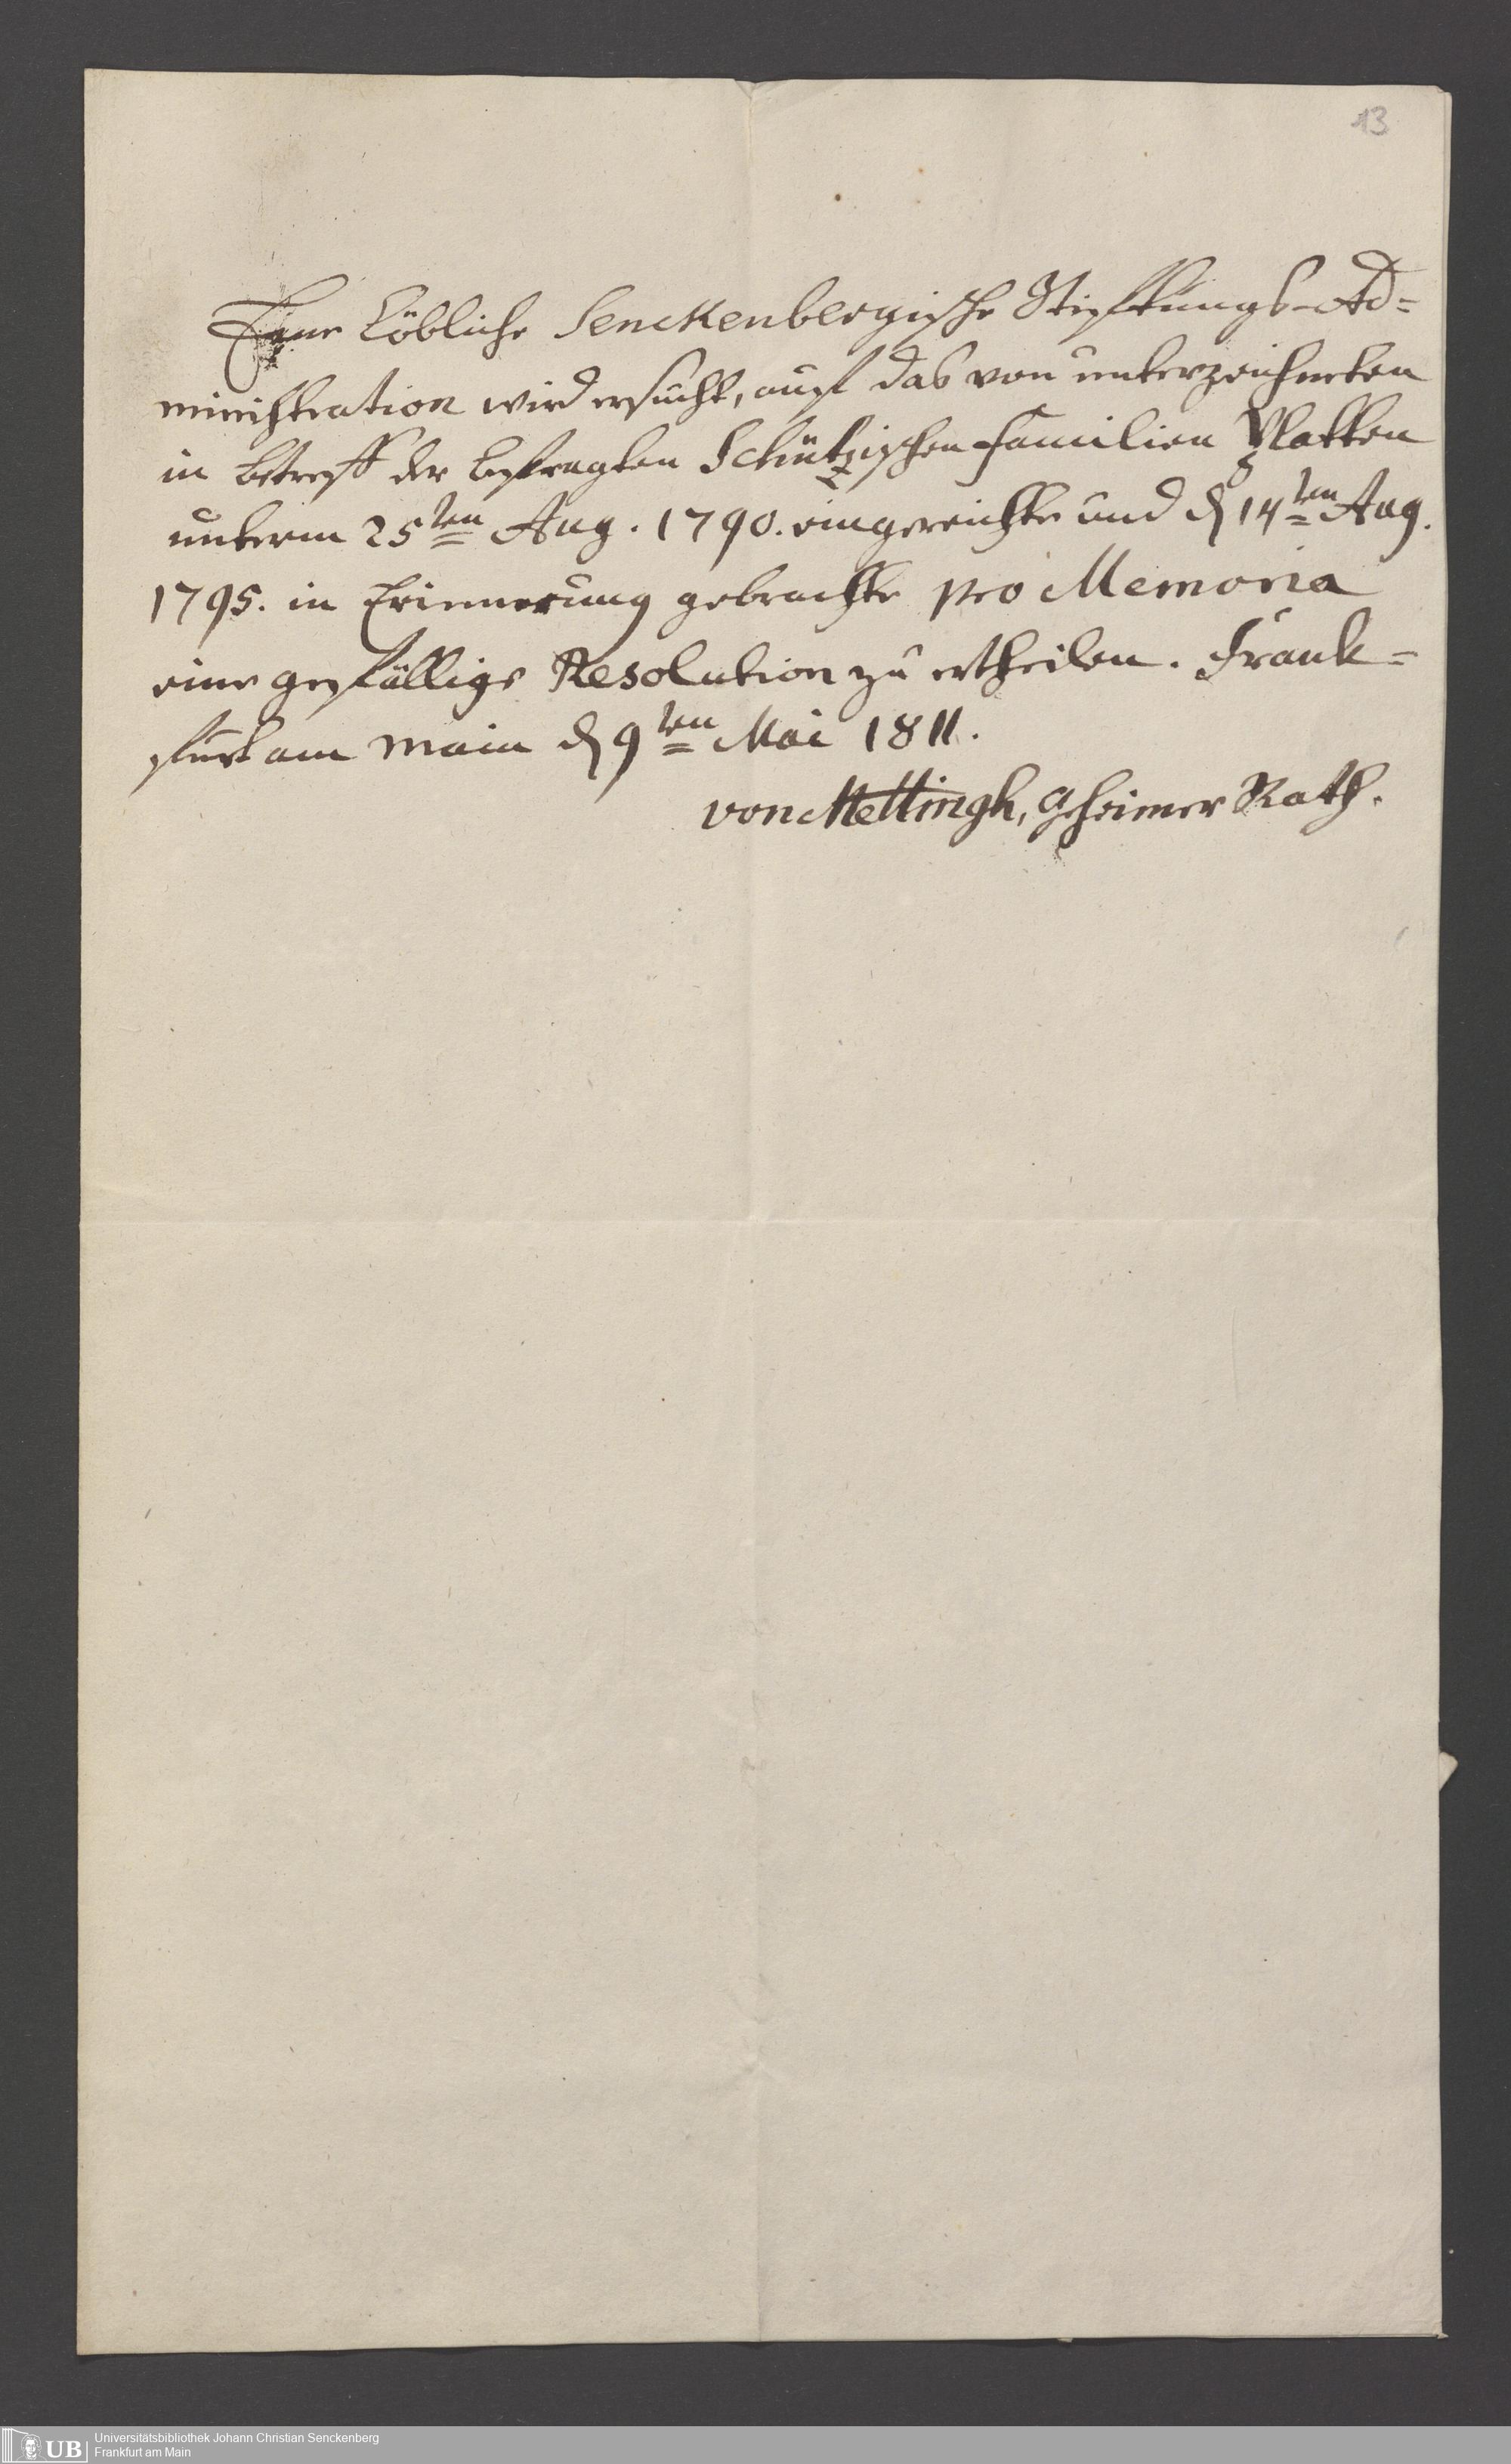 13
Eine Löbliche Senckenbergische Stiftungs-Ad=
ministration wird ersucht, auf das von unterzeichneten
in betreff der befragten Schützischen Familien Platten
unterm 25ten Aug. 1790. eingereichte und d 14ten Aug.
1795. in Erinnerung gebrachte pro Memoria
eine gefällige Resolution zu ertheilen. Frank=
furt am Main d 9ten Mai 1811.
von Mettingh, Geheimer Rath.
UB
Universitätsbibliothek Johann Christian Senckenberg
Frankfurt am Main